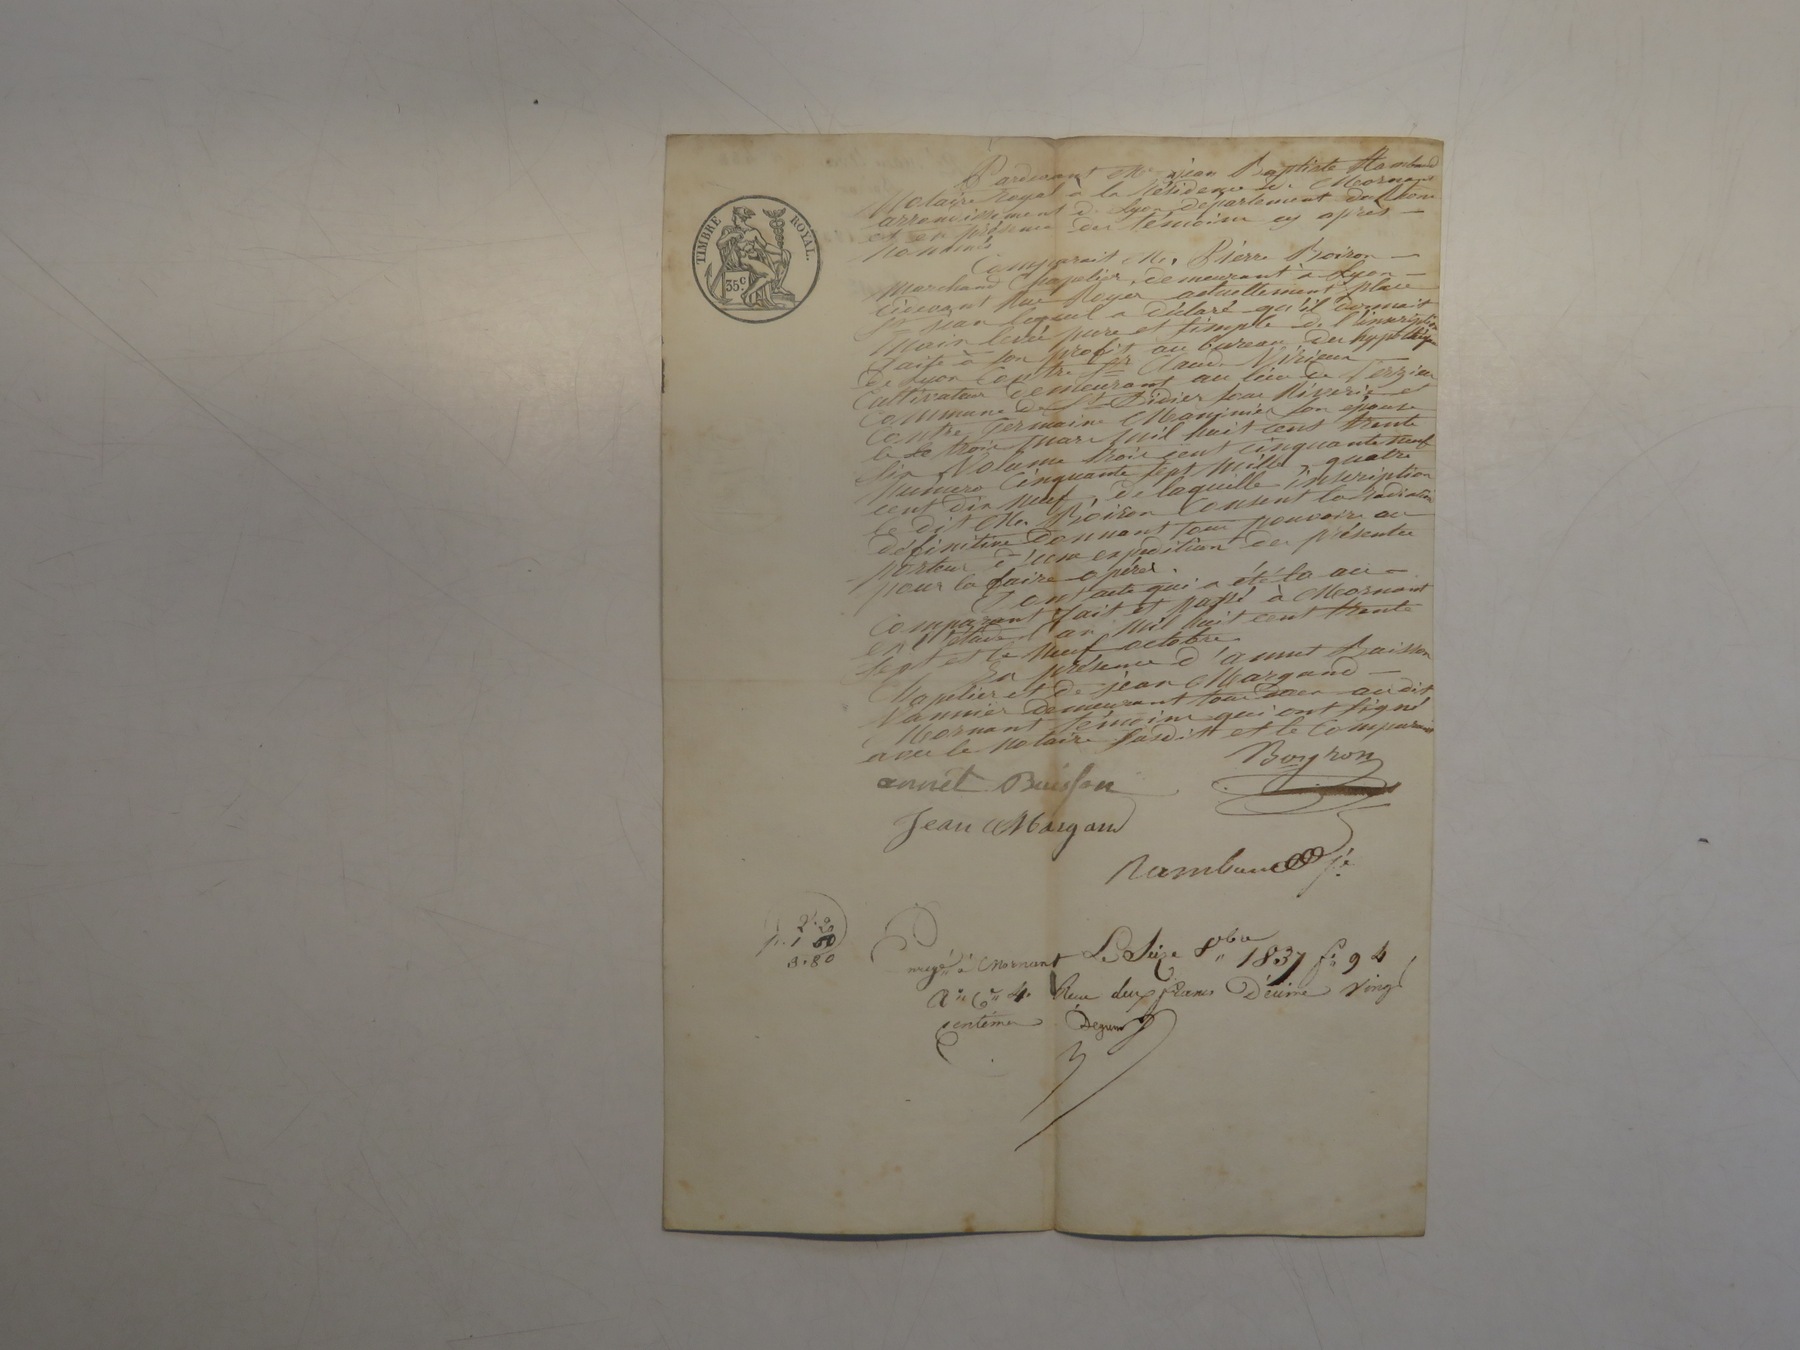 TIMBRE ROYAL.
35 c
Pardevant Me jean Baptiste Rambaud
Notaire Royal à la Résidence de Mornant
arrondissement de Lyon département du Rhone
et en présence des témoins cy après
nommés
Comparait Mr. Pierre Boiron
Marchand Chapelier, demeurant à Lyon
cidevant Rue Royer actuellement place
St jean lequel a déclaré qu'il donnait
Main levée pure et simple de l'inscription
faite à son profit au bureau des hypothèques
de Lyon Contre Claude Virieux
Cultivateur demeurant au lieu de
Commune de St Didier sous Riverie et
Contre Germaine son épouse
le trois mars mil huit cent trente
six Volume trois cent cinquante neuf
Numero Cinquante sept mille quatre
cent dix neuf, de laquelle inscription
le dit Mr. Boiron Consent la Radiation
définitive donnant tous pouvoirs au
porteur d'une expédition des présentes
pour la faire opérer.
Dont acte qui a été lu au
Comparant fait et passé à Mornant
en l'étude l'an mil huit cent trente
sept et le neuf octobre
En présence d'annet Buisson
Chapelier et de jean Margand
Vannier demeurant tous deux audit
Mornant témoins qui ont signé
avec le Notaire susdit et le Comparant
Boyron
annet Buisson
Jean Margand
Rambaud
2.
1 60
3.80
Enregé à Mornant Le Seize 8bre 1837 fo 94
Ro Ce 4. Reçu deux francs Décime vingt
centimes